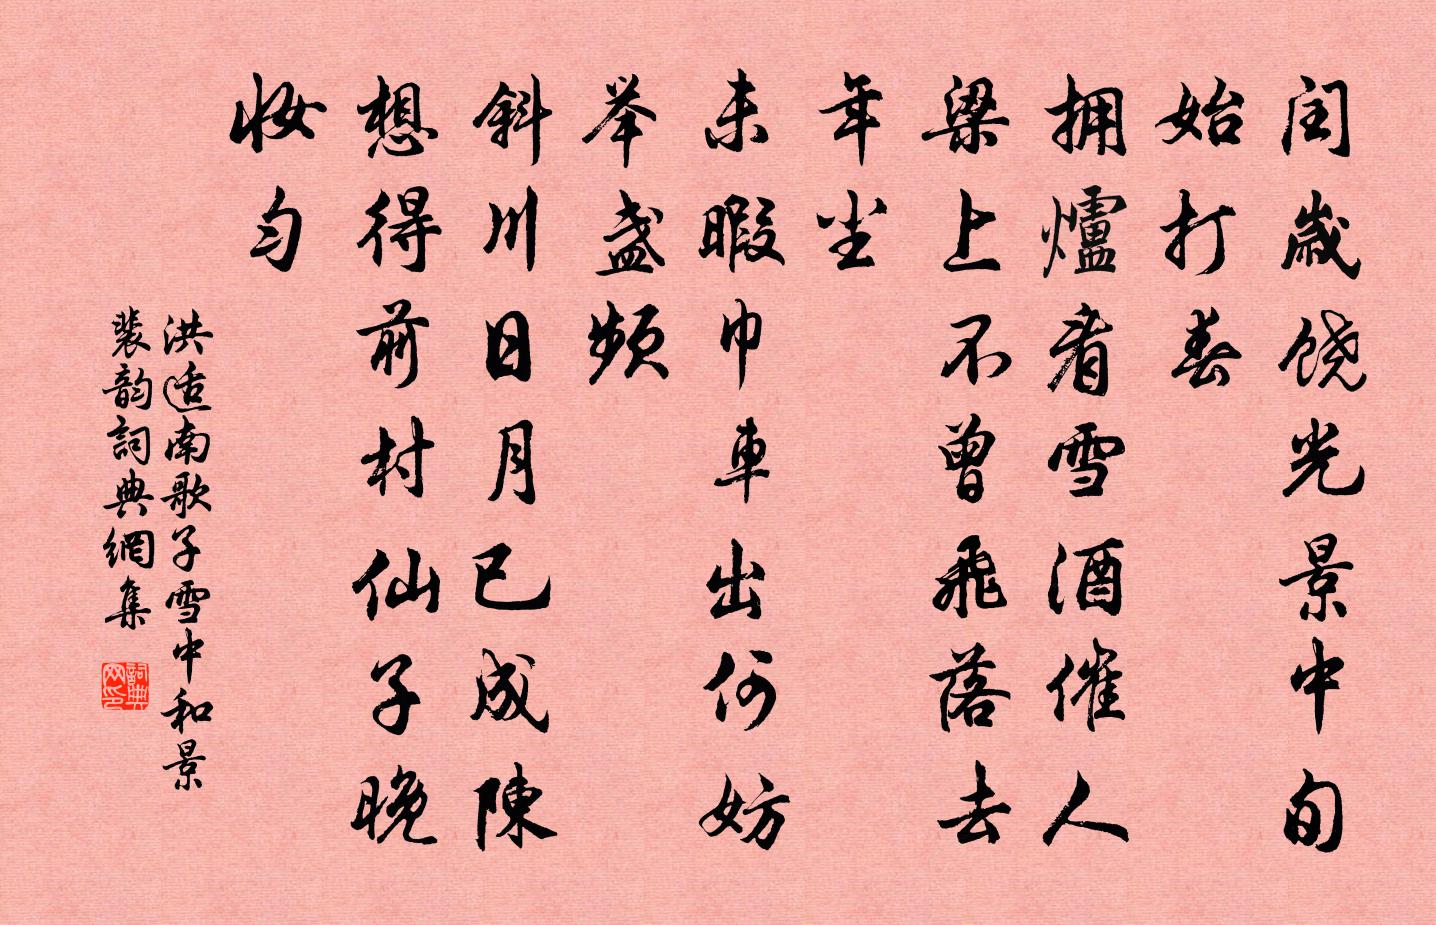 闰歲饶光景中旬
始打春
拥爐看雪酒催人
梁上不曾飛落去
年尘
未暇巾車出何妨
举盏频
斜川日月已成陳
想得前村仙子晚
妆匀
洪适南歌子雪中和景
裴韵詞典網集
詞典网印